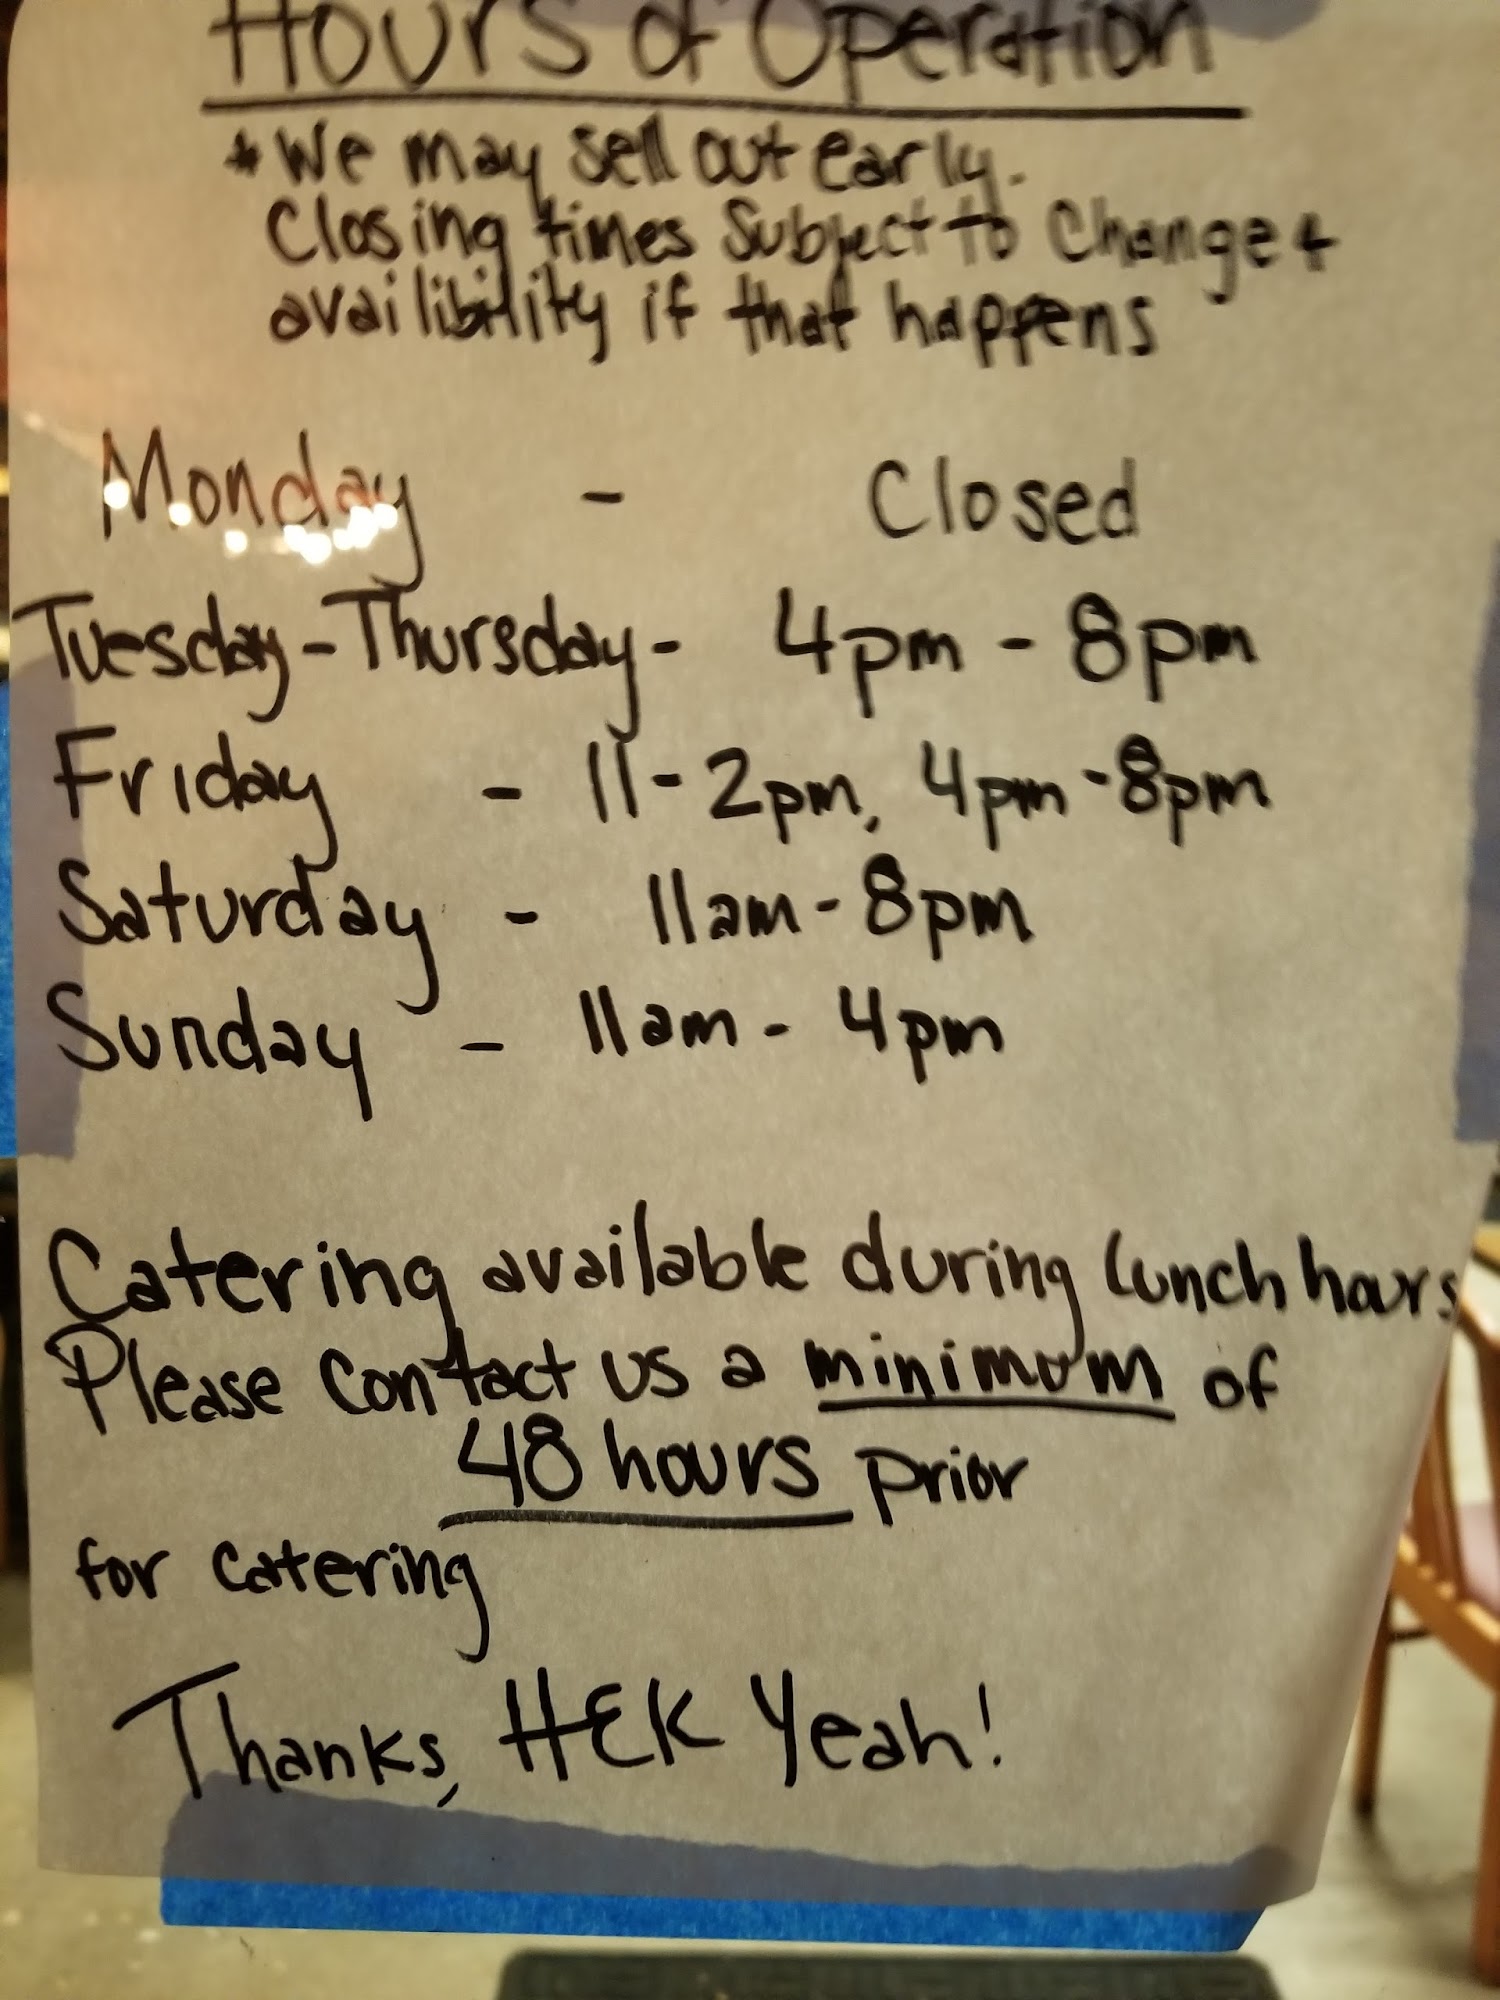 Hours of Operation
* We may sell out early.
Closing times Subject to Change &
availibility if that happens
Monday - Closed
Tuesday - Thursday - 4pm - 8pm
Friday - 11 - 2pm, 4pm - 8pm
Saturday - 11am - 8pm
Sunday - 11am - 4pm
Catering available during lunch hours
Please contact us a minimum of
48 hours prior
for catering
Thanks, HEK Yeah!